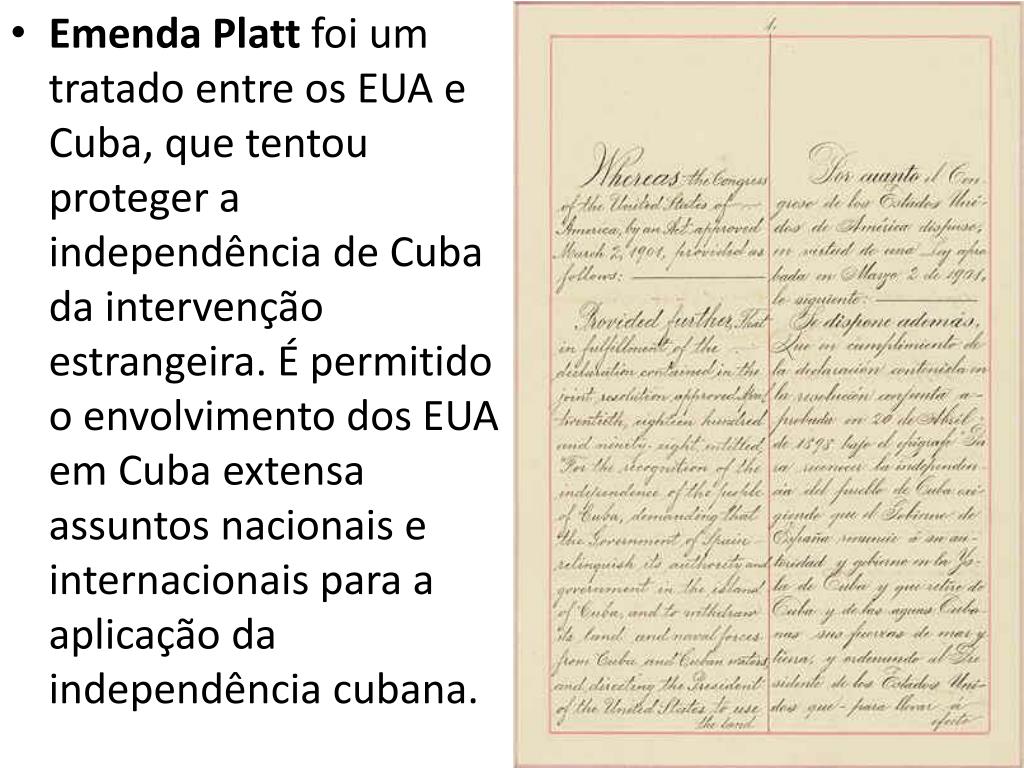 • Emenda Platt foi um
tratado entre os EUA e
Cuba, que tentou
proteger a
independência de Cuba
da intervenção
estrangeira. É permitido
o envolvimento dos EUA
em Cuba extensa
assuntos nacionais e
internacionais para a
aplicação da
independência cubana.
1.
Whereas the Congress
of the United States of
America, by an Act approved
March 2, 1901, provided as
follows:
Provided further, That
in fulfillment of the
declaration contained in the
joint resolution approved April
twentieth, eighteen hundred
and ninety-eight, entitled,
"For the recognition of the
independence of the people
of Cuba, demanding that
the Government of Spain
relinquish its authority and
government in the island
of Cuba, and to withdraw
its land and naval forces
from Cuba and Cuban waters,
and directing the President
of the United States to use
the land
Por cuanto el Con-
greso de los Estados Uni-
dos de América dispuso,
en virtud de una Ley apro
bada en Marzo 2 de 1901,
lo siguiente:
Se dispone además,
Que en cumplimiento de
la declaración contenida en
la resolución conjunta a-
probada en 20 de Abril
de 1898 bajo el epígrafe "Pa
ra reconocer la independen-
cia del pueblo de Cuba exi-
giendo que el Gobierno de
España renuncie á su au-
toridad y gobierno en la Ys-
la de Cuba y que retire de
Cuba y de las aguas Cuba-
nas sus fuerzas de mar y
tierra, y ordenando al Pre
sidente de los Estados Uni-
dos que para llevar á
efecto